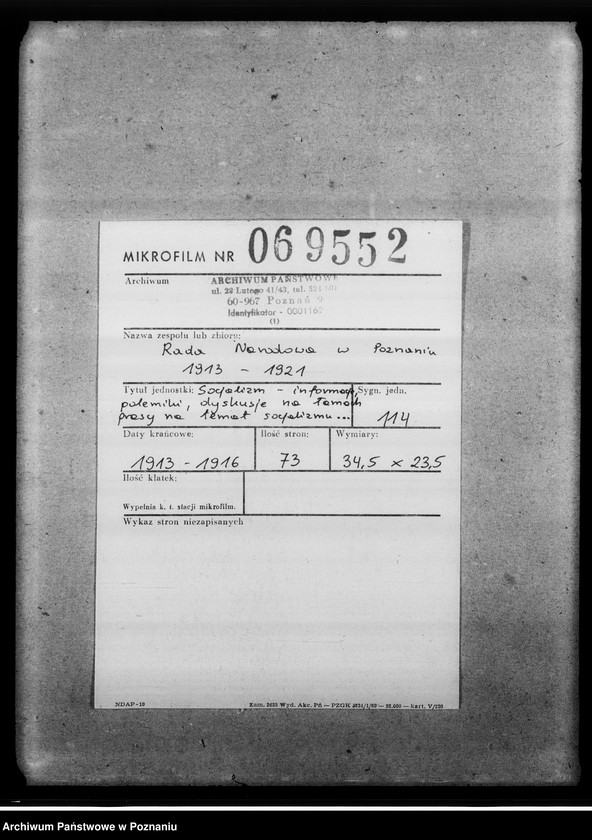 MIKROFILM NR 069552
Archiwum
ARCHIWUM PAŃSTWOWE
ul. 23 Lutego 41/43, tel.
60-967 Poznań 9
Identyfikator - 0001162
(1)
Nazwa zespołu lub zbioru:
Rada Narodowa w Poznaniu
1913 - 1921
Tytuł jednostki: Socjalizm - informacje, Sygn. jedn.
polemiki, dyskusje na łamach
prasy na temat socjalizmu... 114
Daty krańcowe: Ilość stron: Wymiary:
1913 - 1916 73 34,5 x 23,5
Ilość klatek:
Wypełnia k. t. stacji mikrofilm.
Wykaz stron niezapisanych
NDAP-10 Zam. Wyd. Akc. Pń — PZGK
Archiwum Państwowe w Poznaniu